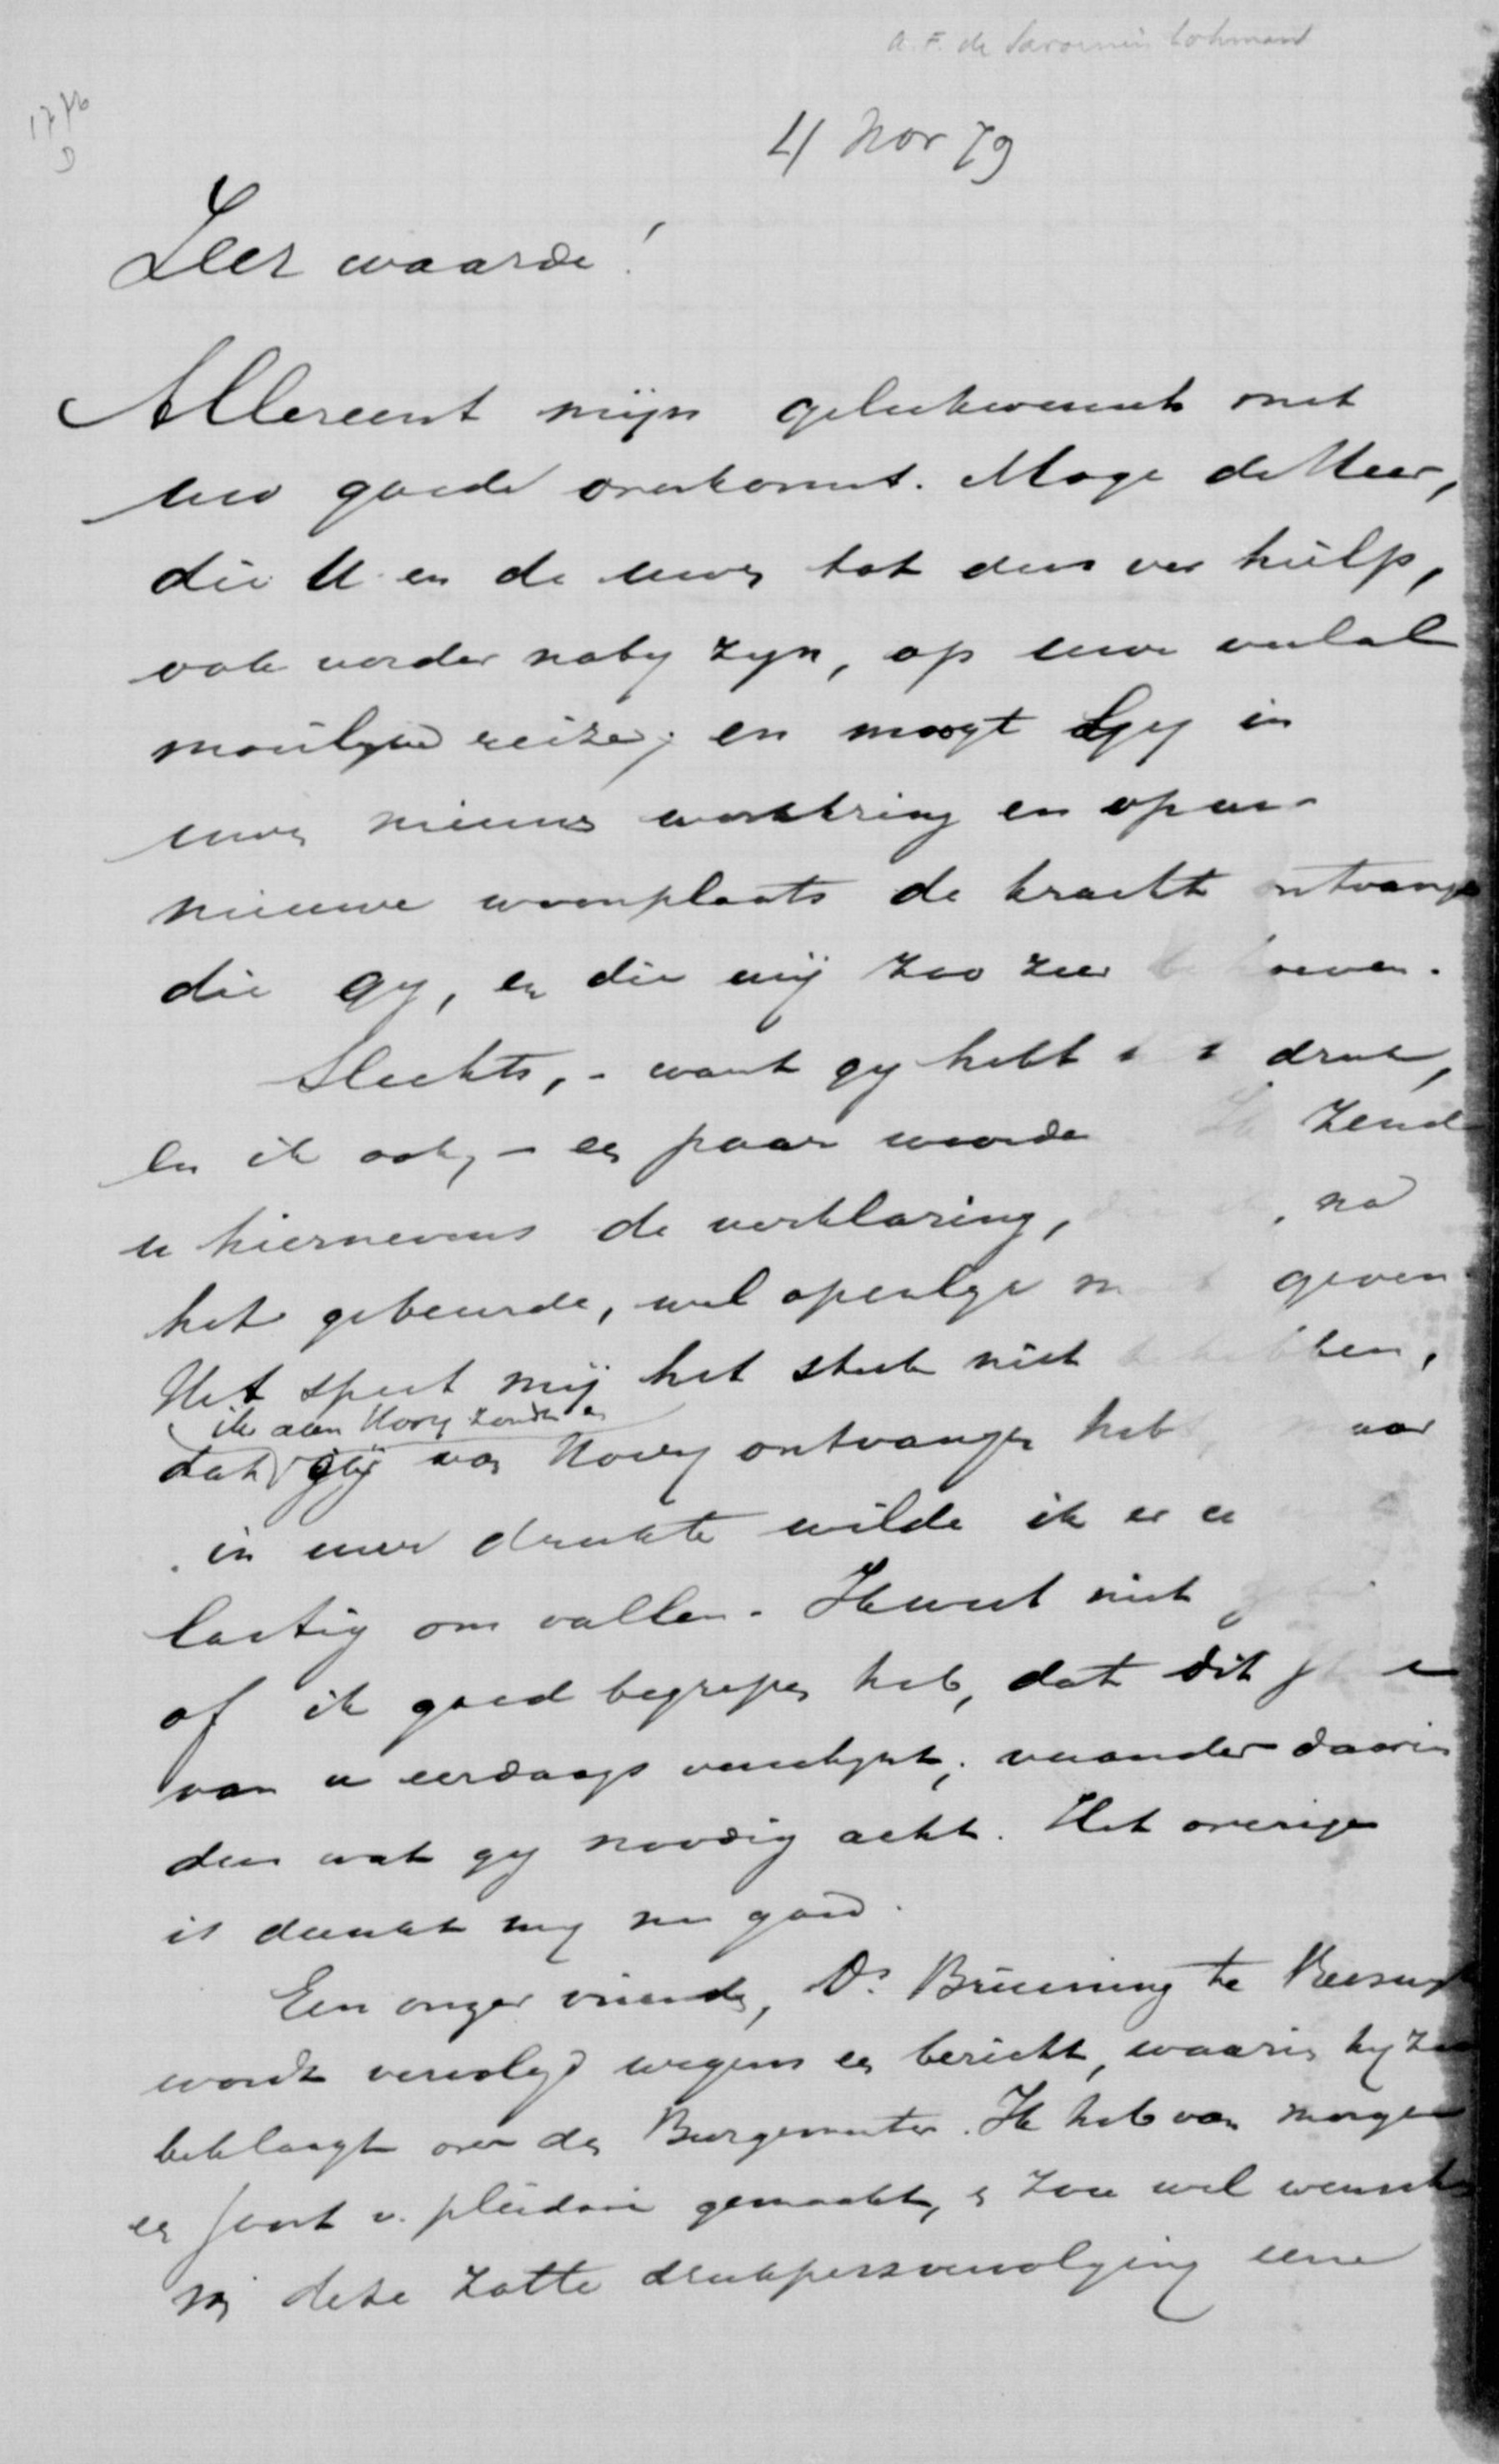 A. F. de Savornin Lohman
1776
D
4 Nov 79
Zeer waarde!
Allereerst mijn gelukwensch met
uw goede overkomst. Moge de Heer,
die U en de uwen tot dus ver hielp,
ook verder naby zyn, op uwe veelal
moeilyke reize; en moogt Gy in
uwen nieuwen werkkring en op uwe
nieuwe woonplaats de kracht ontvangen
die gy, en die wij zoo zeer behoeven.
Slechts, - want gy hebt druk,
en ik ook, - een paar woorden Ik zend
u hiernevens de verklaring, die ik, na
het gebeurde, wel openlyk moet geven.
Het speet mij het stuk niet te hebben,
ik aan Hovy zond en
dat gij van Hovy ontvangen hebt, maar
in uwe drukte wilde ik er u
lastig om vallen. Ik weet niet
of ik goed begrepen heb, dat dit
van u eerdaags verschynt; verander daarin
dan wat gy noodig acht. Het overige
is dunkt my nu goed.
Een onzer vrienden, Ds. Bruining te
wordt vervolgd wegens een bericht, waarin hy zich
beklaagt over den Burgemeester. Ik heb van morgen
een soort v. pleidooi gemaakt, en zou wel wenschen
deze zotte drukpersvervolging eene